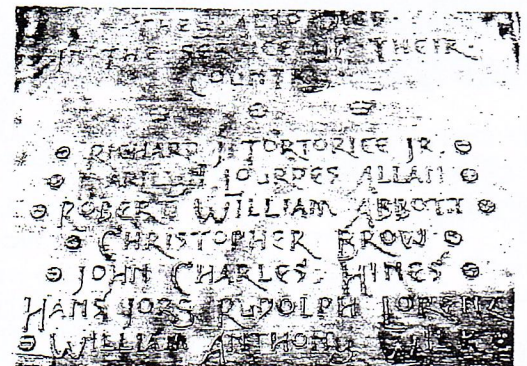 THEY ALSO DIED
IN THE SERVICE OF THEIR
COUNTRY
RICHARD J TORTORICE JR.
LOURDES ALLAN
ROBERT WILLIAM ABBOTT
CHRISTOPHER BROW
JOHN CHARLES HINES
HANS JORG RUDOLPH LORENZ
WILLIAM ANTHONY